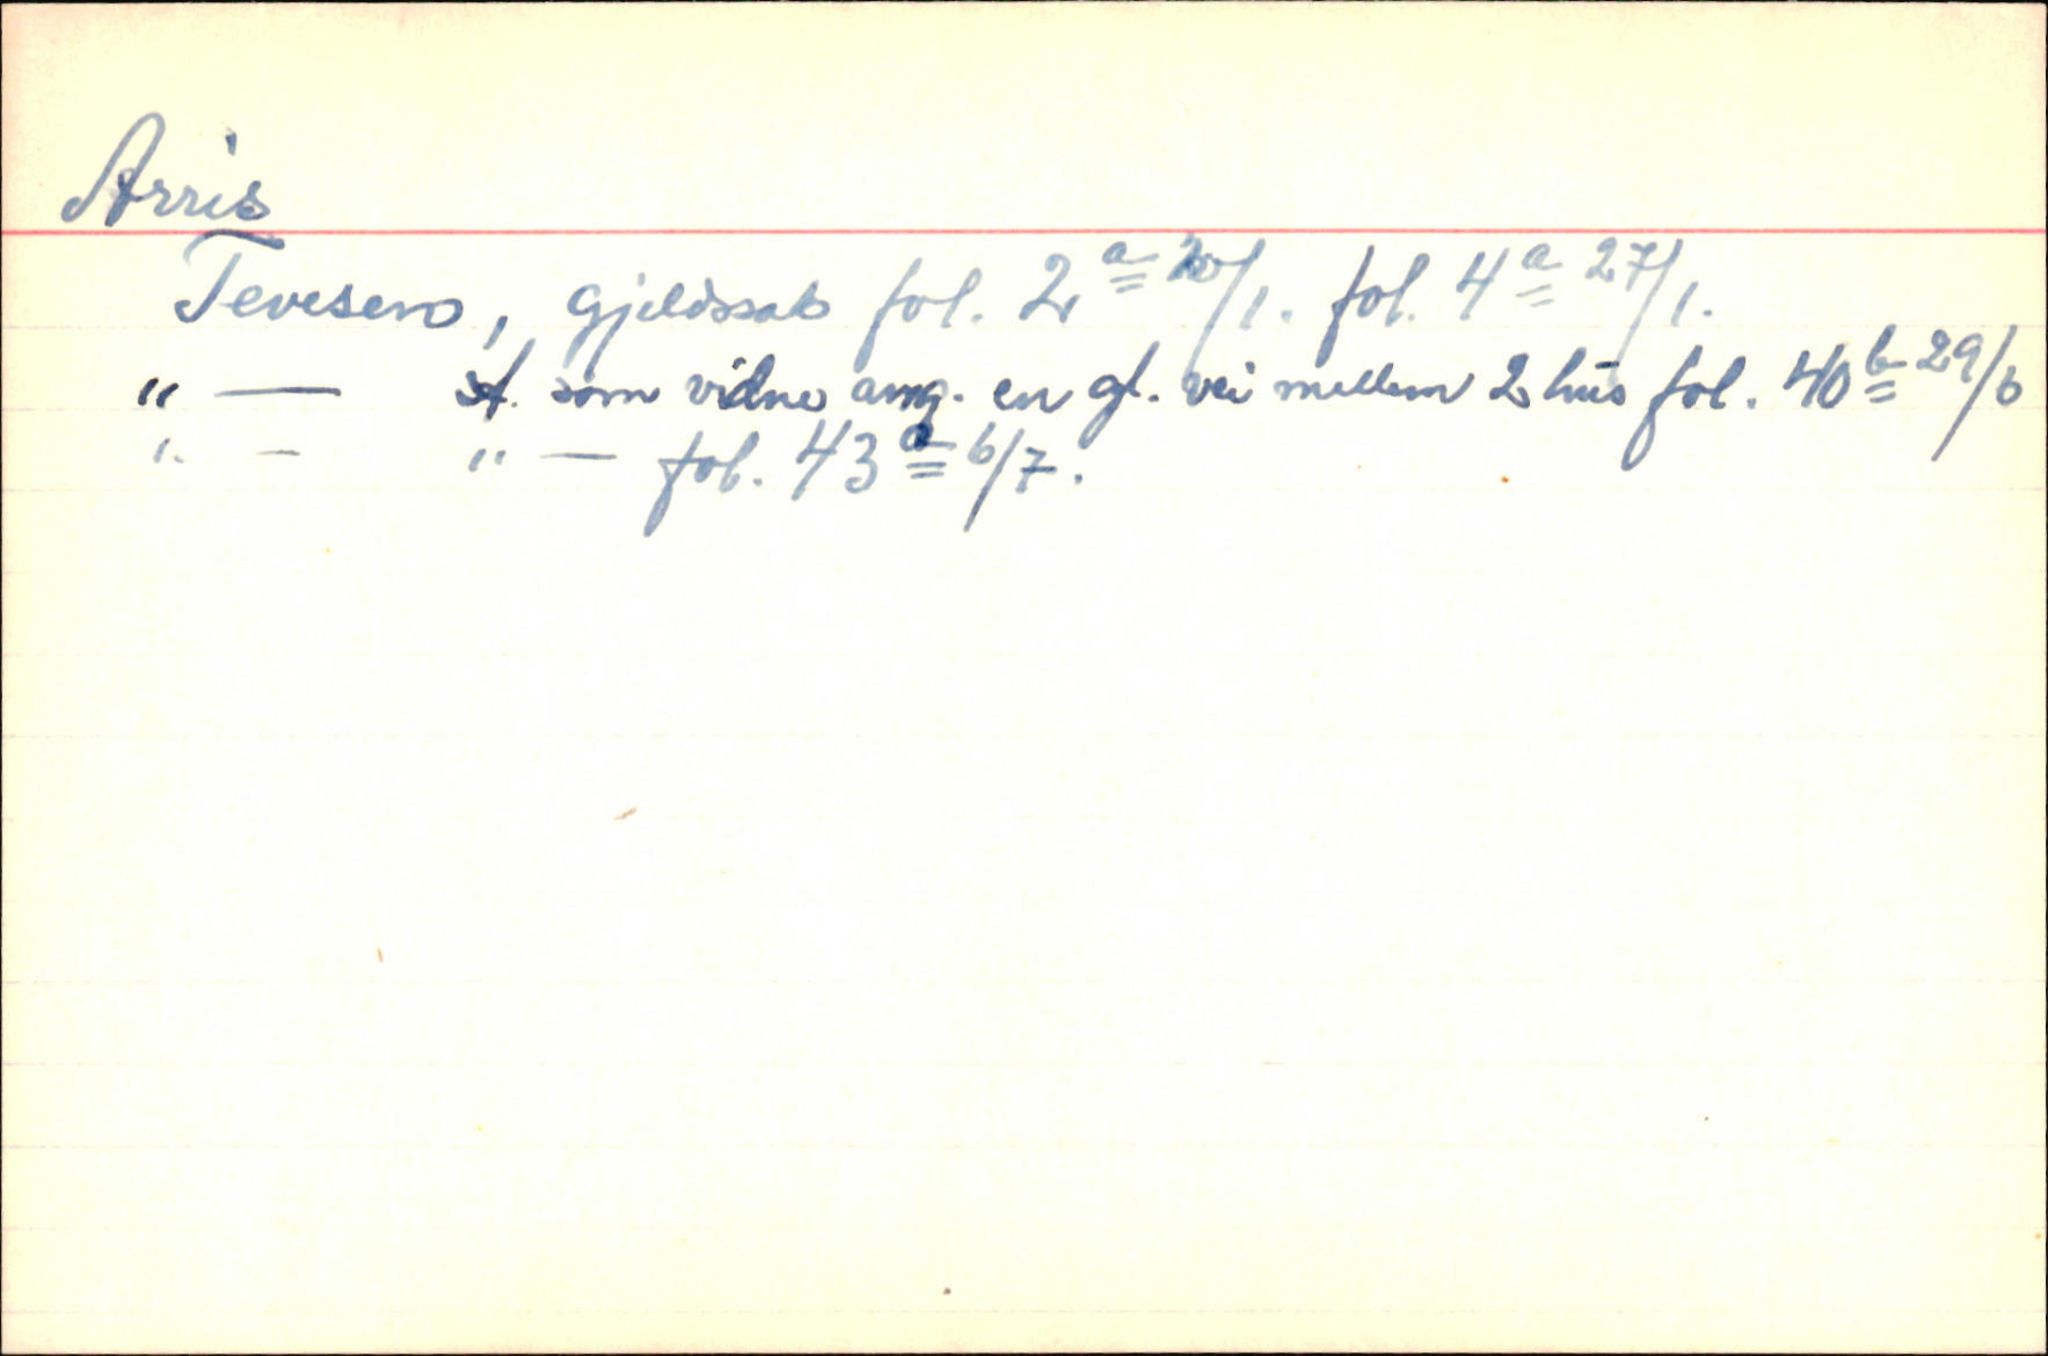 Arris
Tevesen, Gjeldssak fol. 2 a 20/1. fol. 4 a 27/1.
" — A. som vidne ang. en gl. vei mellem 2 hus fol. 40 b 29/6
" - " — fol. 43 a 6/7.